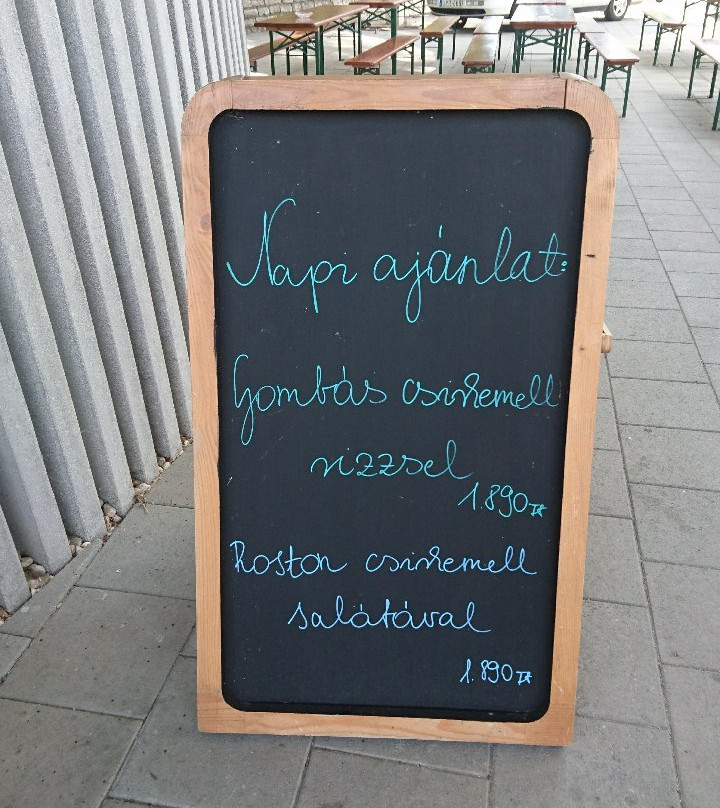 Napi ajánlat:
Gombás csirkemell
rizzsel
1.890 Ft
Roston csirkemell
salátával
1.890 Ft